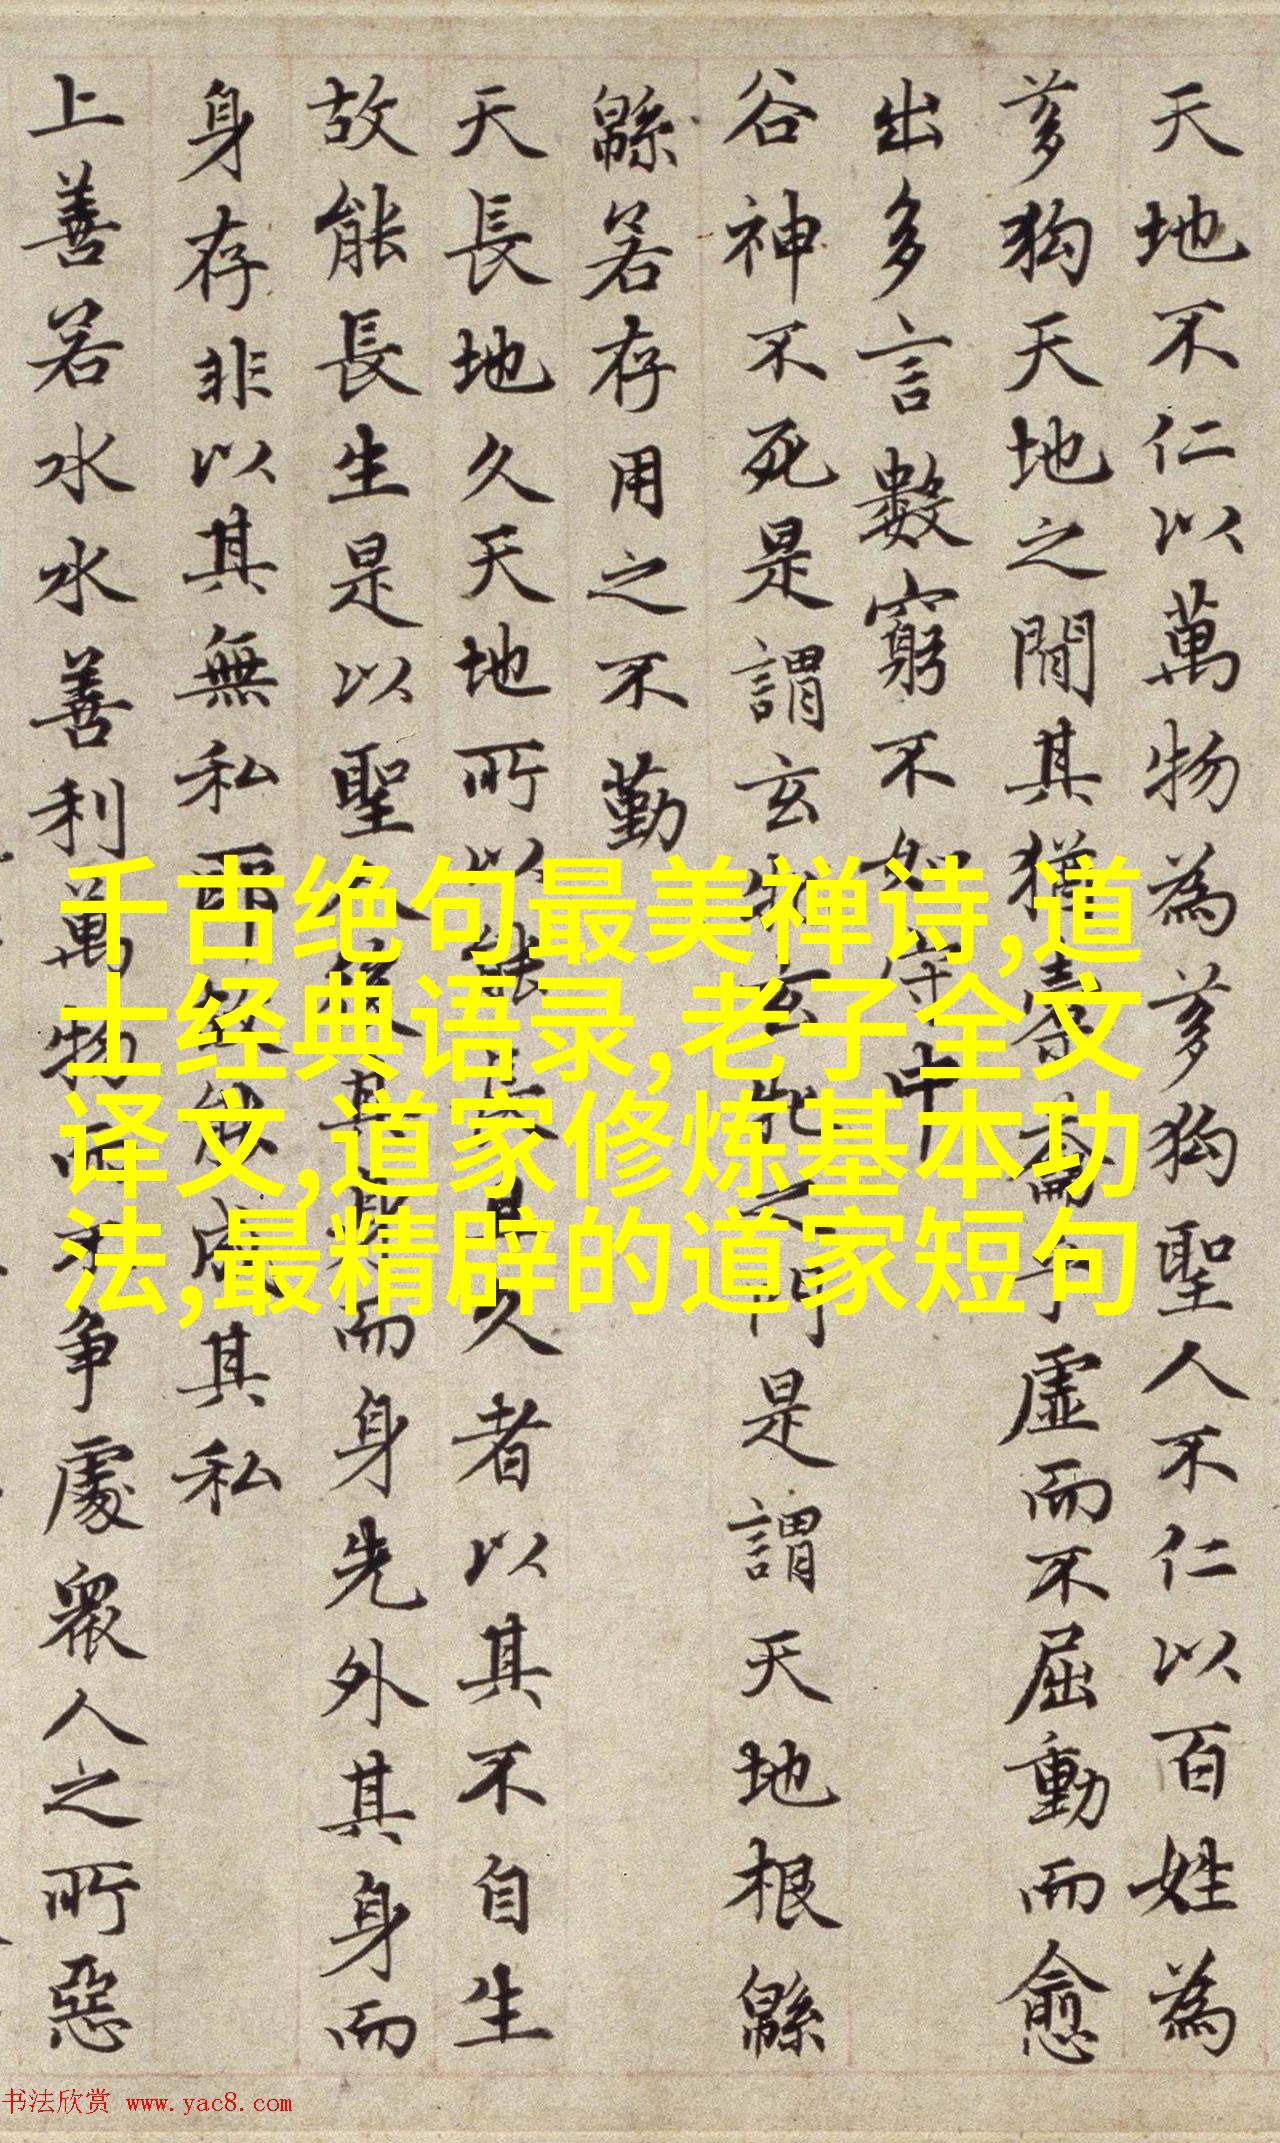 天地不仁以萬物為芻狗聖人不仁以百姓為
芻狗天地之間其猶橐籥乎虛而不屈動而愈
出多言數窮不如守中
谷神不死是謂玄牝玄牝之門是謂天地根緜
緜若存用之不勤
天長地久天地所以能長且久者以其不自生
故能長生是以聖人後其身而身先外其身而
身存非以其無私耶故能成其私
上善若水水善利萬物而不爭處衆人之所惡
千古绝句最美禅诗,道
士经典语录,老子全文
译文,道家修炼基本功
法,最精辟的道家短句
书法欣赏 www.yac8.com